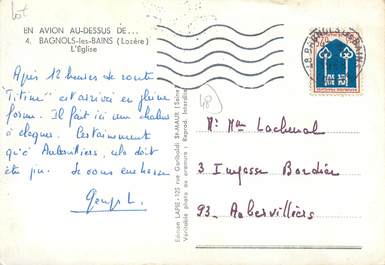 lot
EN AVION AU-DESSUS DE...
4. BAGNOLS-les-BAINS (Lozère)
L'Église
Après 12 heures de route
"Titine" est arrivé en pleine
forme. Il fait ici une chaleur
à claquer. Certainement
qu'à Aubervilliers, cela doit
être pis. Je vous embrasse
48
Edition LAPIE - 125 rue Garibaldi St-MAUR (Seine)
Véritable photo au bromure - Reprod. Interdite
Mr Mme Lachenal
3 Impasse Bordier
93. Aubervilliers